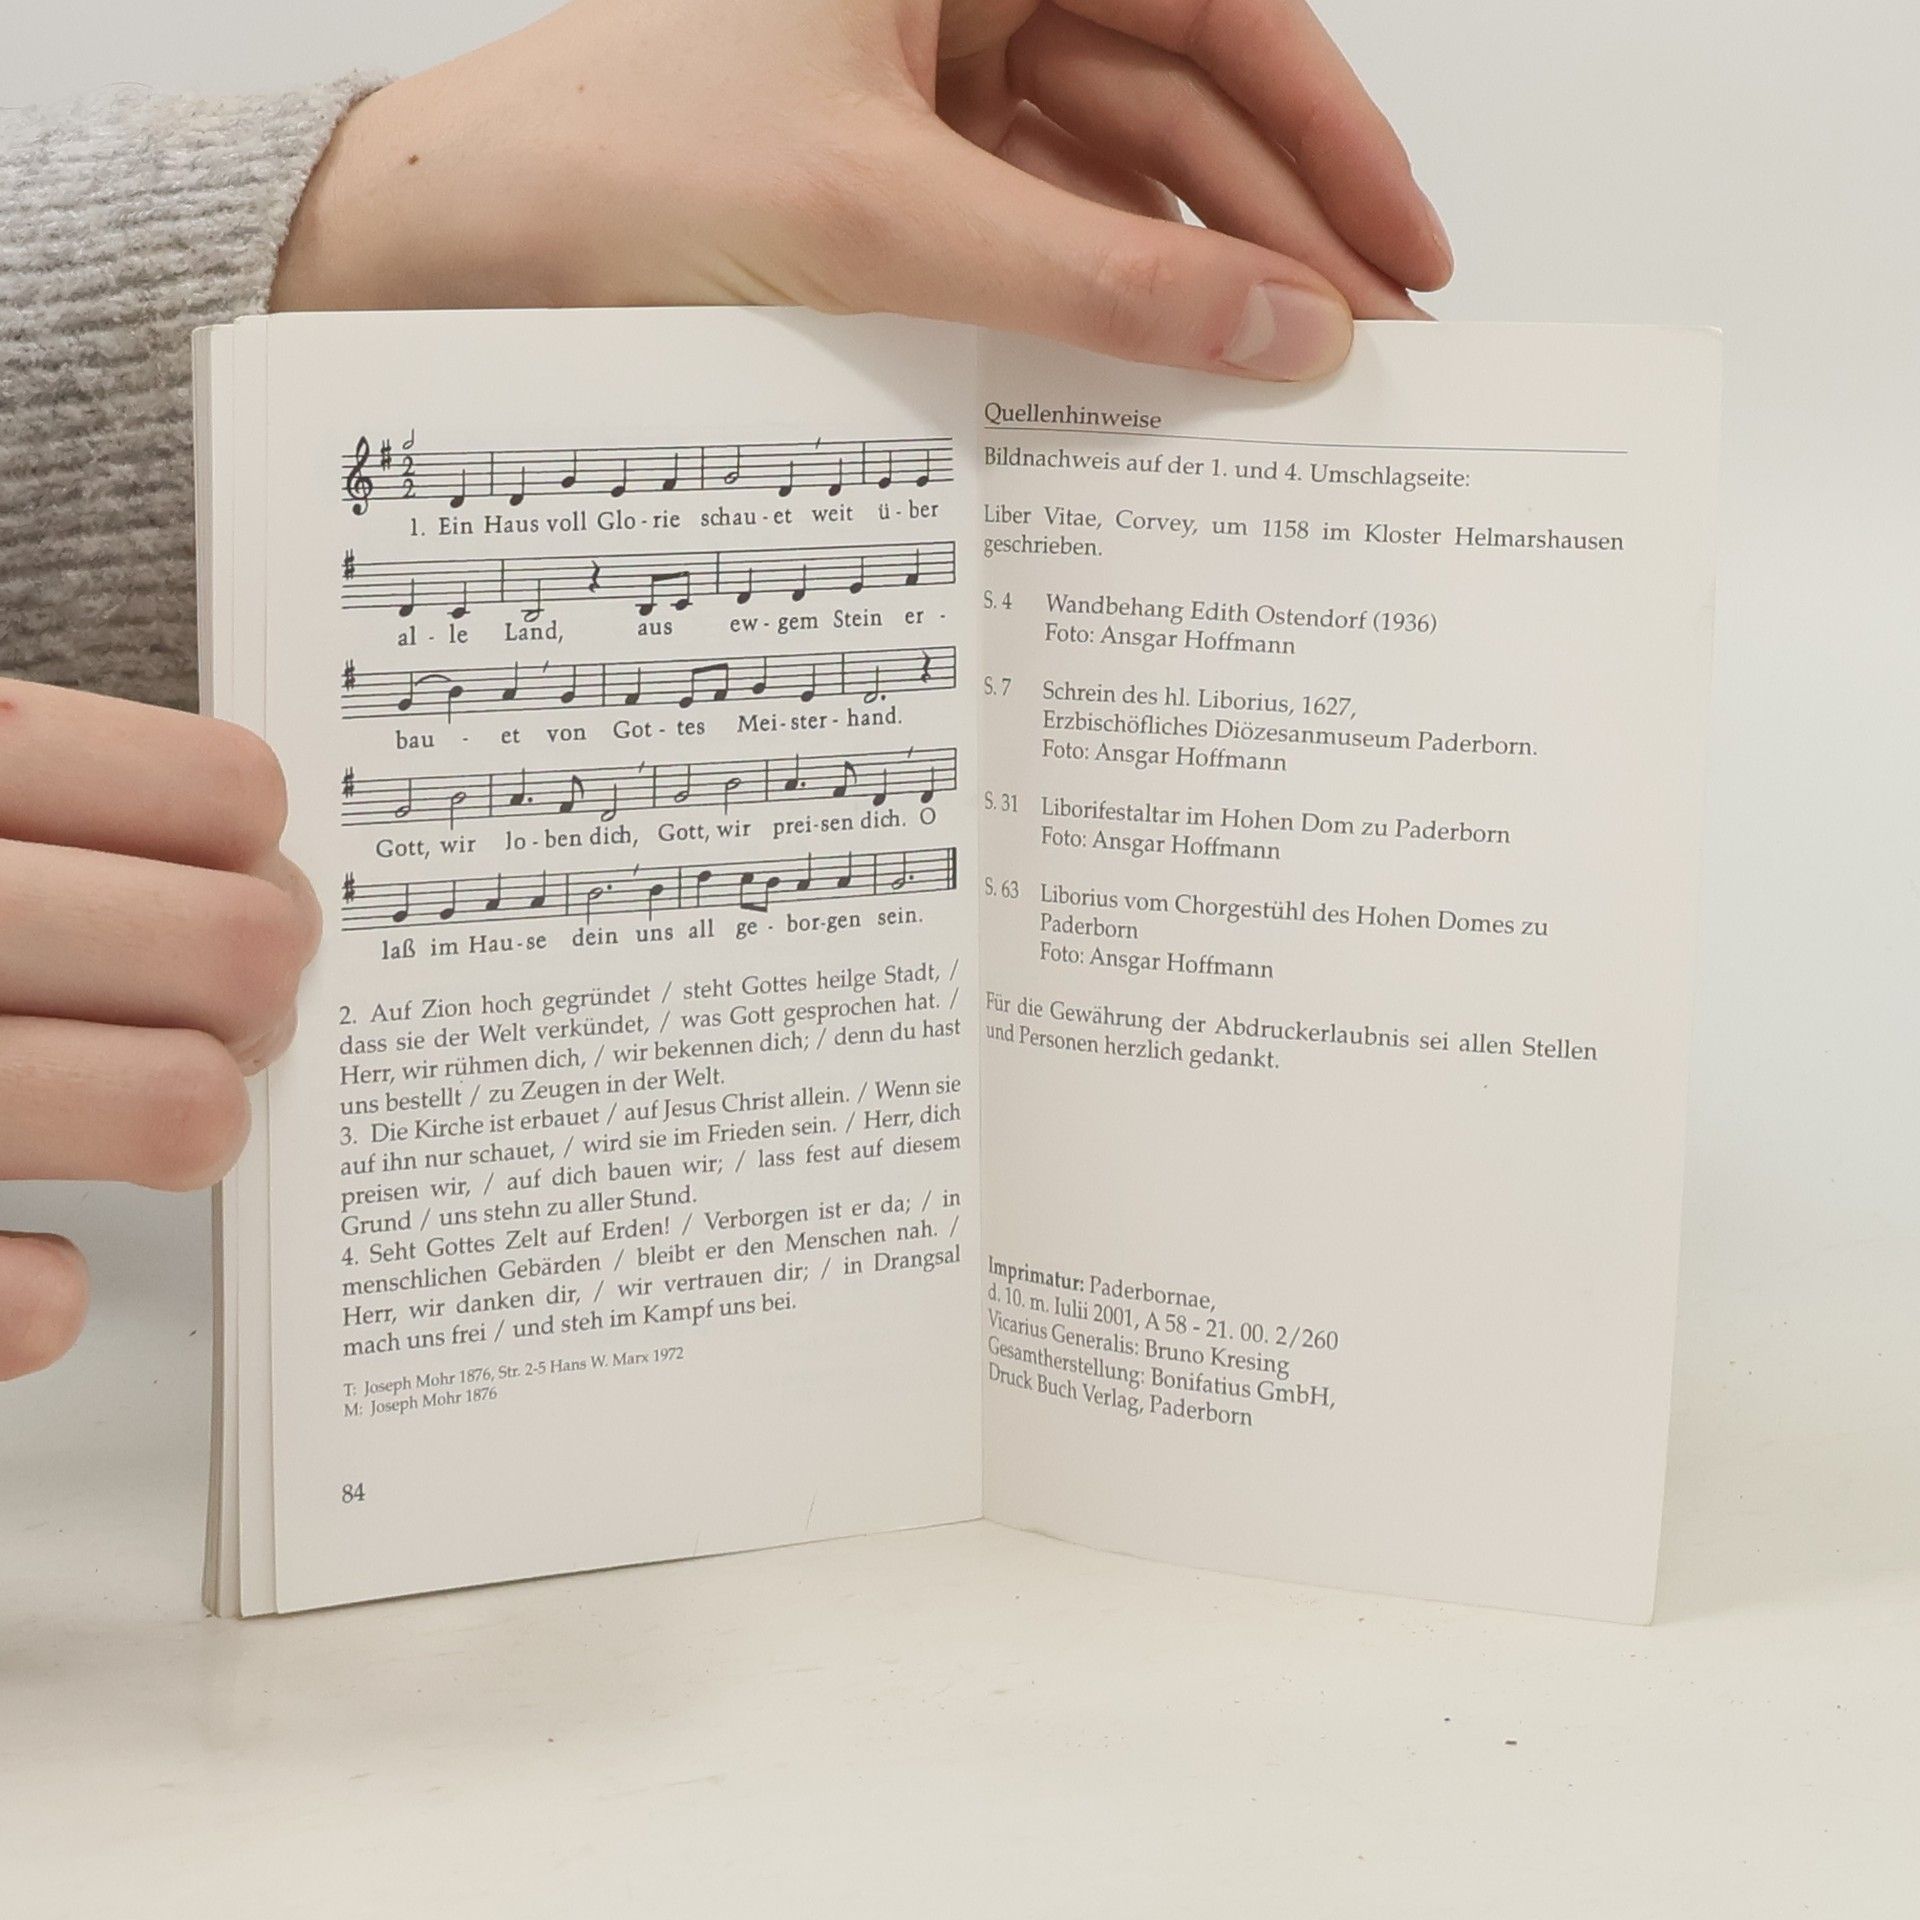 1. Ein Haus voll Glo - rie schau - et weit ü - ber
al - le Land, aus ew - gem Stein er -
bau - et von Got - tes Mei - ster - hand.
Gott, wir lo - ben dich, Gott, wir prei - sen dich. O
laß im Hau - se dein uns all ge - bor - gen sein.
2. Auf Zion hoch gegründet / steht Gottes heilge Stadt, /
dass sie der Welt verkündet, / was Gott gesprochen hat. /
Herr, wir rühmen dich, / wir bekennen dich; / denn du hast
uns bestellt / zu Zeugen in der Welt.
3. Die Kirche ist erbauet / auf Jesus Christ allein. / Wenn sie
auf ihn nur schauet, / wird sie im Frieden sein. / Herr, dich
preisen wir, / auf dich bauen wir; / lass fest auf diesem
Grund / uns stehn zu aller Stund.
4. Seht Gottes Zelt auf Erden! / Verborgen ist er da; / in
menschlichen Gebärden / bleibt er den Menschen nah. /
Herr, wir danken dir, / wir vertrauen dir; / in Drangsal
mach uns frei / und steh im Kampf uns bei.
T: Joseph Mohr 1876, Str. 2-5 Hans W. Marx 1972
M: Joseph Mohr 1876
84
Quellenhinweise
Bildnachweis auf der 1. und 4. Umschlagseite:
Liber Vitae, Corvey, um 1158 im Kloster Helmarshausen
geschrieben.
S. 4 Wandbehang Edith Ostendorf (1936)
Foto: Ansgar Hoffmann
S. 7 Schrein des hl. Liborius, 1627,
Erzbischöfliches Diözesanmuseum Paderborn.
Foto: Ansgar Hoffmann
S. 31 Liborifestaltar im Hohen Dom zu Paderborn
Foto: Ansgar Hoffmann
S. 63 Liborius vom Chorgestühl des Hohen Domes zu
Paderborn
Foto: Ansgar Hoffmann
Für die Gewährung der Abdruckerlaubnis sei allen Stellen
und Personen herzlich gedankt.
Imprimatur: Paderbornae,
d. 10. m. Iulii 2001, A 58 - 21. 00. 2/260
Vicarius Generalis: Bruno Kresing
Gesamtherstellung: Bonifatius GmbH,
Druck Buch Verlag, Paderborn